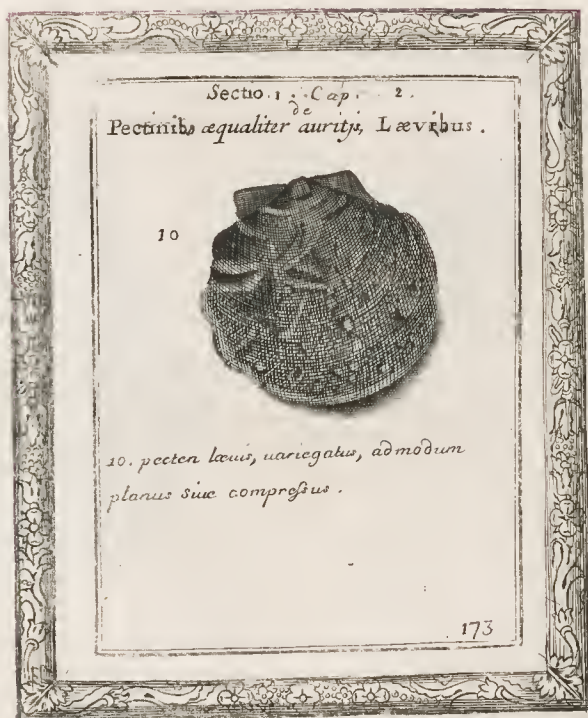 Sectio. 1. Cap. 2.
de
Pectinibs æqualiter auritjs, Lævibus.
10
10. pecten lævis, uariegatus, admodum
planus siue compreſsus.
173